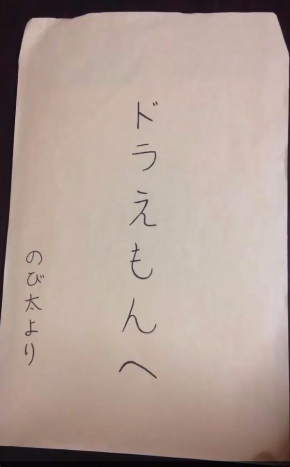 ドラえもんへ
のび太より